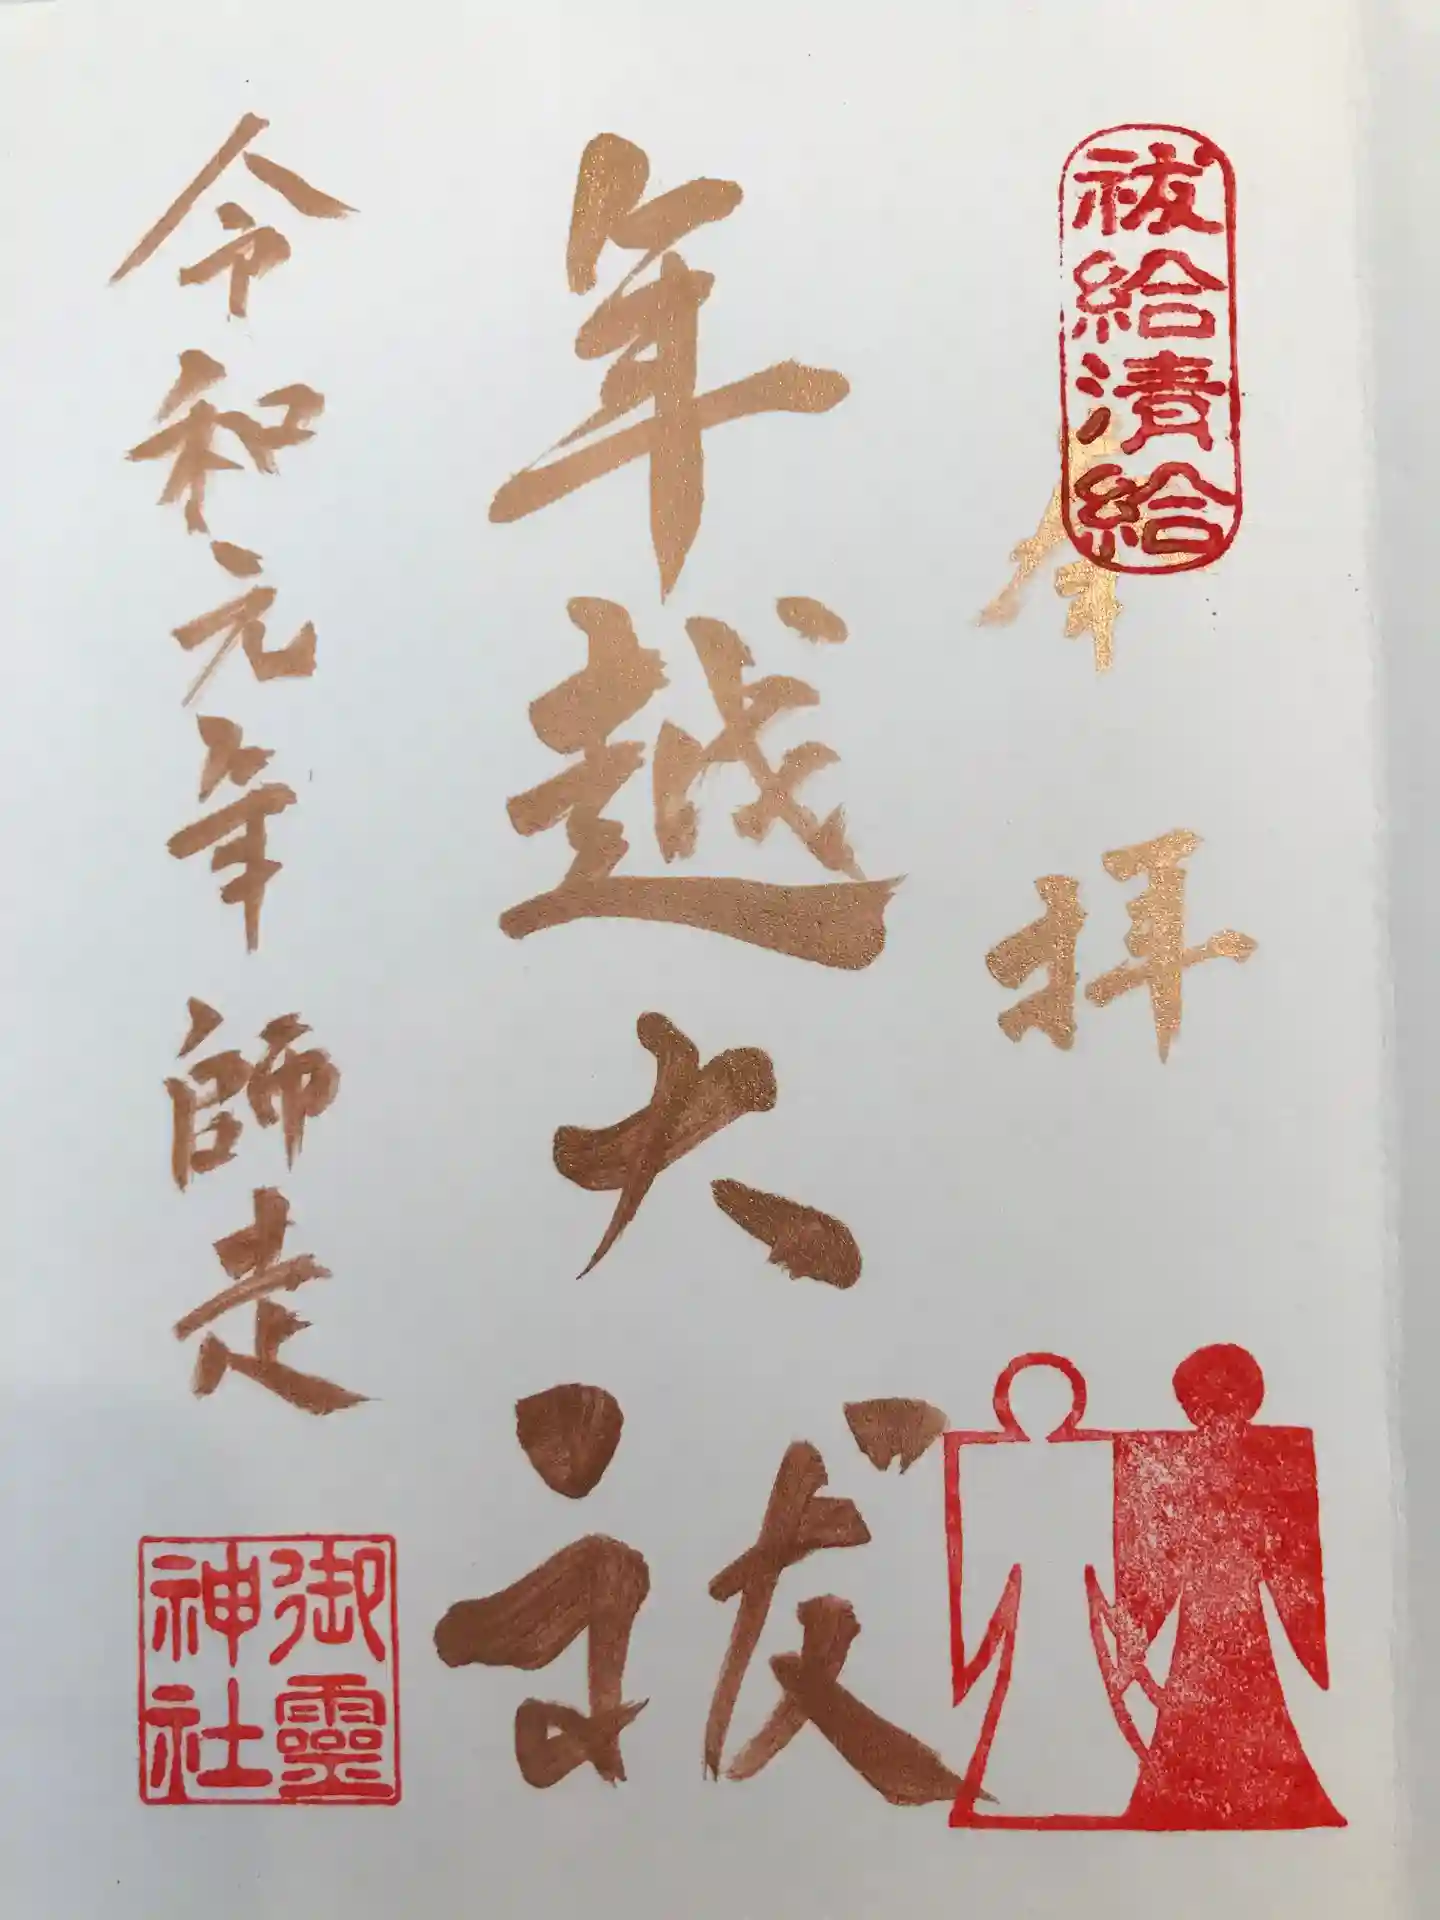 祓給清給
奉拝
年越大祓
令和元年 師走
御靈神社